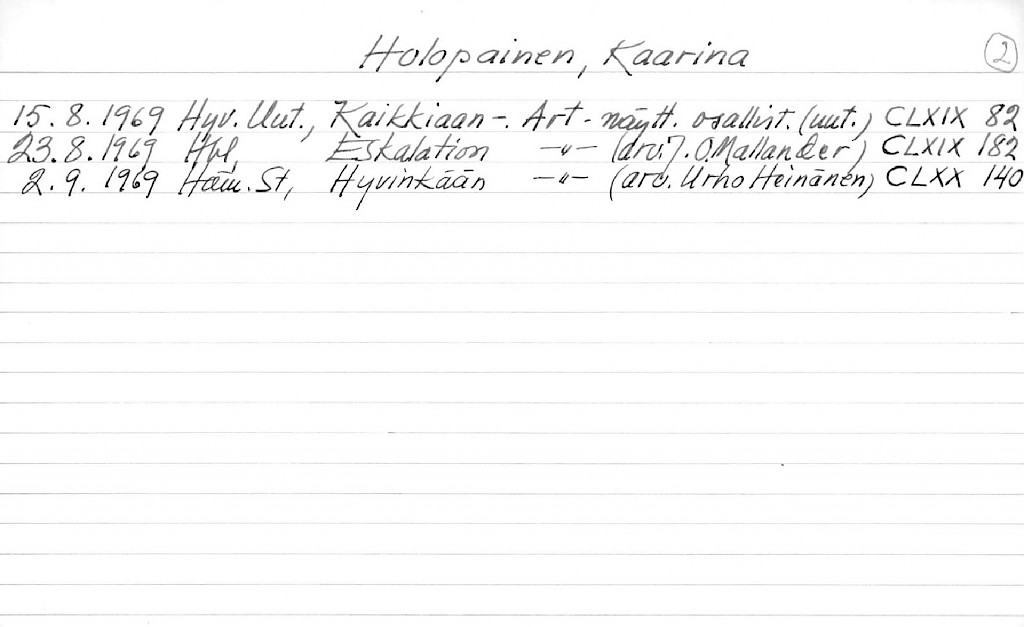 Holopainen, Kaarina 2
15. 8. 1969 Hyv. Uut., Kaikkiaan -. Art - näytt. osallist. (uut.) CLXIX 82
23. 8. 1969 Hbl, Eskalation —"— (arv. J. O. Mallander) CLXIX 182
2. 9. 1969 Häm. St, Hyvinkään —"— (arv. Urho Heinänen) CLXX 140